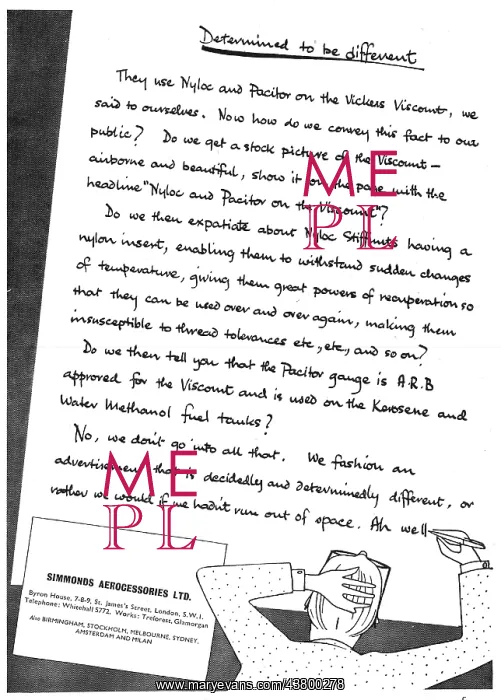 Determined to be different
They use Nyloc and Pacitor on the Vickers Viscount, we
said to ourselves. Now how do we convey this fact to our
public? Do we get a stock picture of the Viscount –
airborne and beautiful, show it on the page with the
headline "Nyloc and Pacitor on the Viscount"?
Do we then expatiate about Nyloc Stiffnuts having a
nylon insert, enabling them to withstand sudden changes
of temperature, giving them great powers of recuperation so
that they can be used over and over again, making them
insusceptible to thread tolerances etc, etc, and so on?
Do we then tell you that the Pacitor gauge is A.R.B
approved for the Viscount and is used on the Kerosene and
Water Methanol fuel tanks?
No, we don't go into all that. We fashion an
advertisement that is decidedly and determinedly different, or
rather we would if we hadn't run out of space. Ah well
SIMMONDS AEROCESSORIES LTD.
Byron House, 7-8-9, St. James's Street, London, S.W.1.
Telephone: Whitehall 5772. Works: Treforest, Glamorgan
Also BIRMINGHAM, STOCKHOLM, MELBOURNE, SYDNEY,
AMSTERDAM AND MILAN
ME
PL
ME
PL
www.maryevans.com/43800278